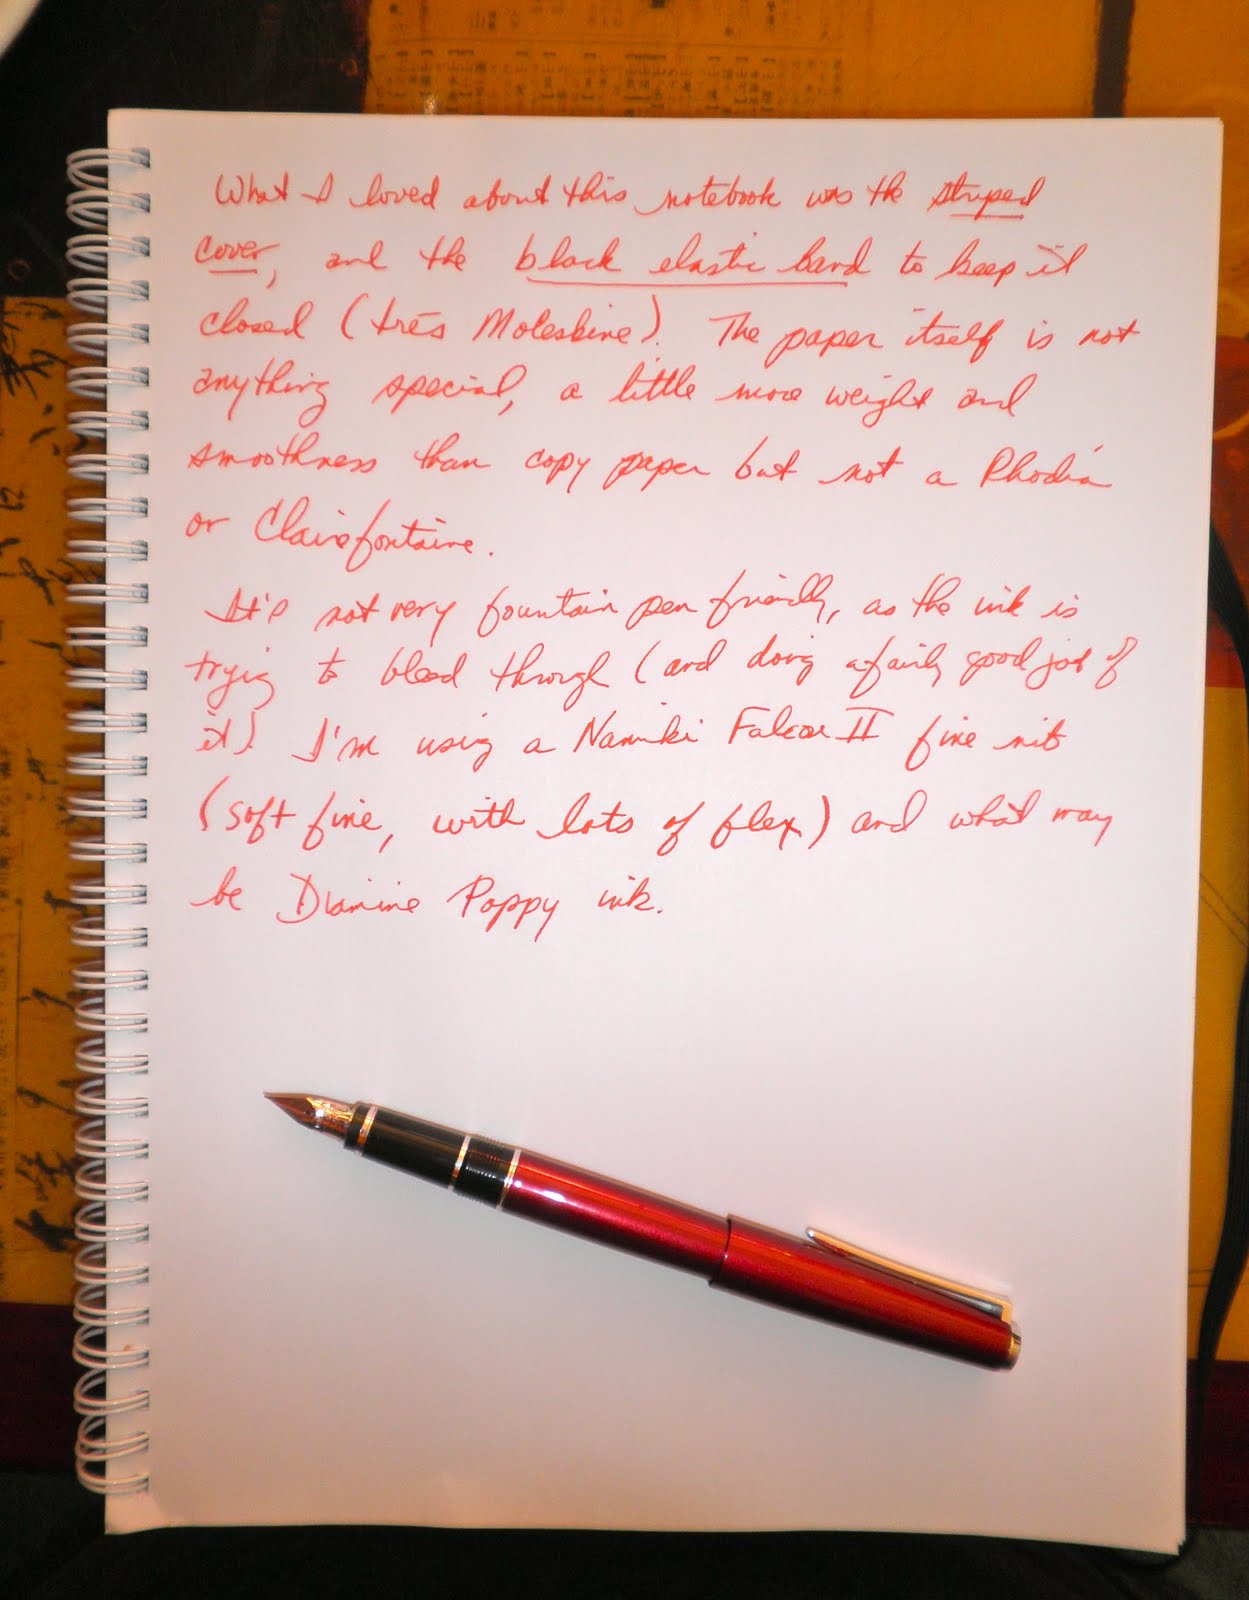 What I loved about this notebook was the striped
cover, and the black elastic band to keep it
closed (très Moleskine). The paper itself is not
anything special, a little more weight and
smoothness than copy paper but not a Rhodia
or Clairefontaine.
It's not very fountain pen friendly, as the ink is
trying to bleed through (and doing a fairly good job of
it). I'm using a Namiki Falcon II fine nib
(soft fine, with lots of flex) and what may
be Diamine Poppy ink.